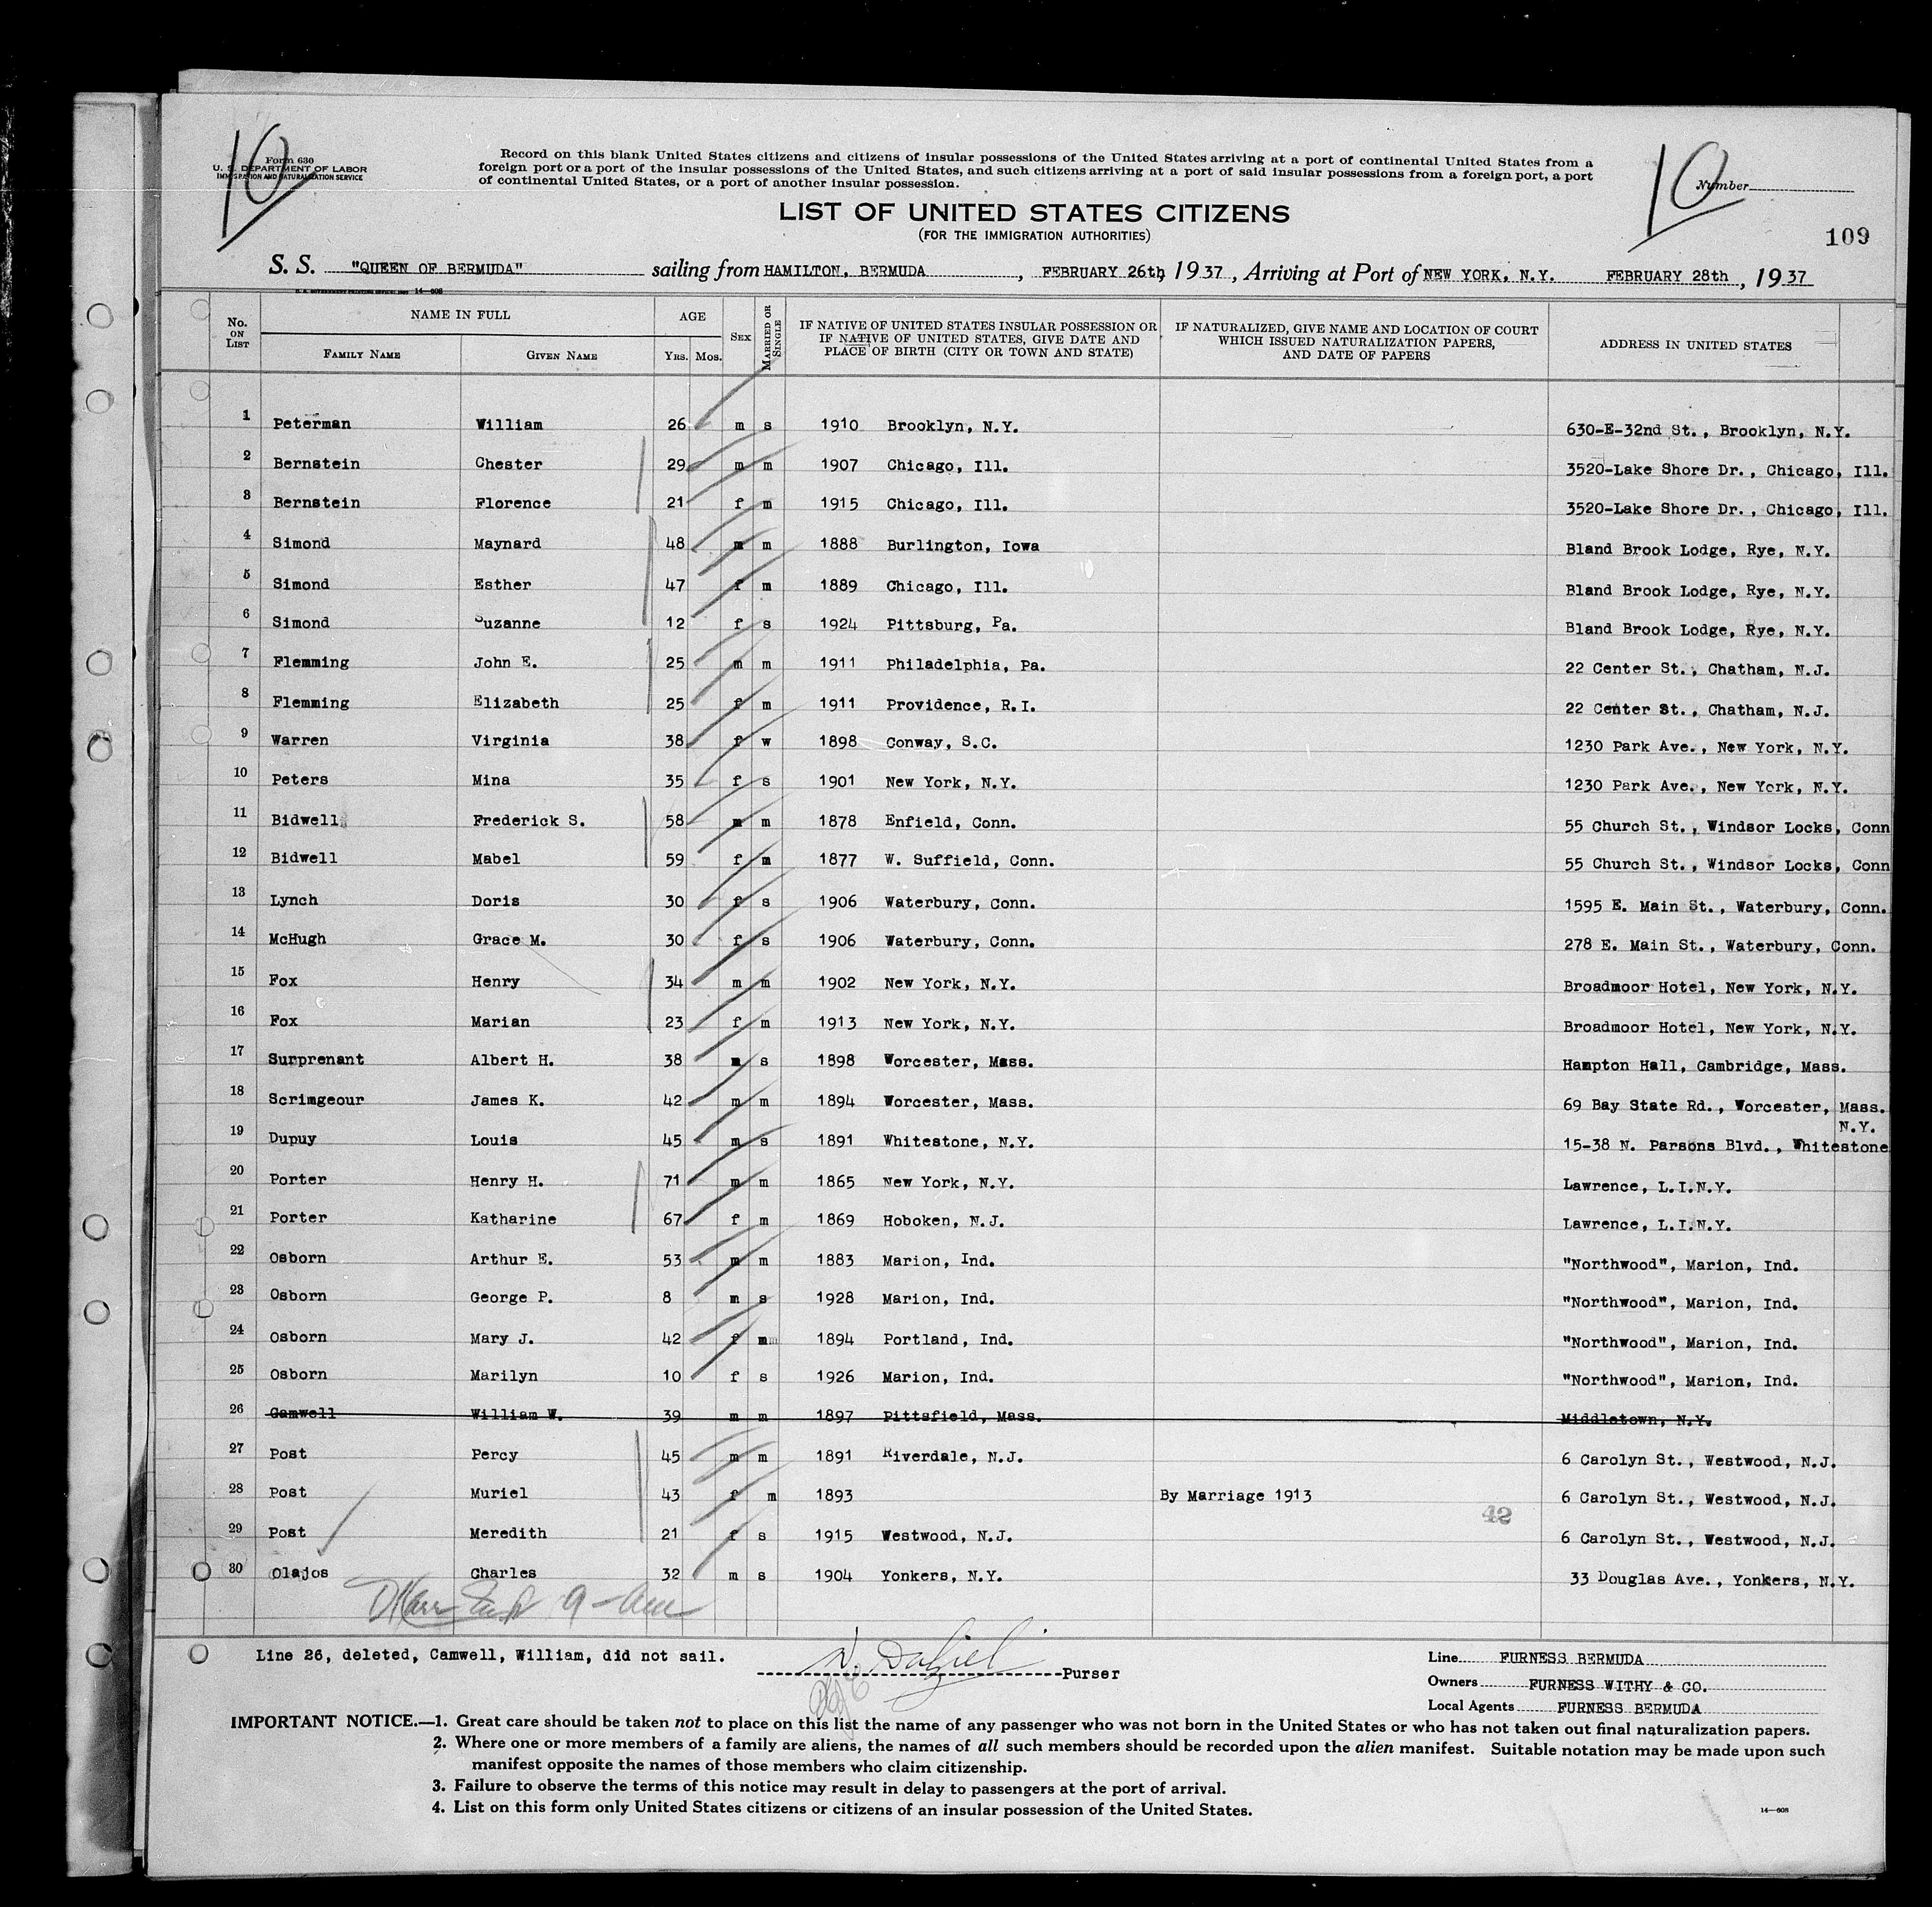 10
Form 630
U. S. DEPARTMENT OF LABOR
IMMIGRATION AND NATURALIZATION SERVICE
Record on this blank United States citizens and citizens of insular possessions of the United States arriving at a port of continental United States from a
foreign port or a port of the insular possessions of the United States, and such citizens arriving at a port of said insular possessions from a foreign port, a port
of continental United States, or a port of another insular possession.
10
Number
LIST OF UNITED STATES CITIZENS
(FOR THE IMMIGRATION AUTHORITIES)
109
S. S. "QUEEN OF BERMUDA" sailing from HAMILTON, BERMUDA, FEBRUARY 26th, 1937, Arriving at Port of NEW YORK, N.Y. FEBRUARY 28th, 1937
14-608
No. ON LIST NAME IN FULL FAMILY NAME GIVEN NAME AGE YRS. MOS. SEX MARRIED OR SINGLE IF NATIVE OF UNITED STATES INSULAR POSSESSION OR IF NATIVE OF UNITED STATES, GIVE DATE AND PLACE OF BIRTH (CITY OR TOWN AND STATE) IF NATURALIZED, GIVE NAME AND LOCATION OF COURT WHICH ISSUED NATURALIZATION PAPERS, AND DATE OF PAPERS ADDRESS IN UNITED STATES
1 Peterman William 26 m s 1910 Brooklyn, N.Y. 630-E-32nd St., Brooklyn, N.Y.
2 Bernstein Chester 29 m m 1907 Chicago, Ill. 3520-Lake Shore Dr., Chicago, Ill.
3 Bernstein Florence 21 f m 1915 Chicago, Ill. 3520-Lake Shore Dr., Chicago, Ill.
4 Simond Maynard 48 m m 1888 Burlington, Iowa Bland Brook Lodge, Rye, N.Y.
5 Simond Esther 47 f m 1889 Chicago, Ill. Bland Brook Lodge, Rye, N.Y.
6 Simond Suzanne 12 f s 1924 Pittsburg, Pa. Bland Brook Lodge, Rye, N.Y.
7 Flemming John E. 25 m m 1911 Philadelphia, Pa. 22 Center St., Chatham, N.J.
8 Flemming Elizabeth 25 f m 1911 Providence, R.I. 22 Center St., Chatham, N.J.
9 Warren Virginia 38 f w 1898 Conway, S.C. 1230 Park Ave., New York, N.Y.
10 Peters Mina 35 f s 1901 New York, N.Y. 1230 Park Ave., New York, N.Y.
11 Bidwell Frederick S. 58 m m 1878 Enfield, Conn. 55 Church St., Windsor Locks, Conn
12 Bidwell Mabel 59 f m 1877 W. Suffield, Conn. 55 Church St., Windsor Locks, Conn
13 Lynch Doris 30 f s 1906 Waterbury, Conn. 1595 E. Main St., Waterbury, Conn.
14 McHugh Grace M. 30 f s 1906 Waterbury, Conn. 278 E. Main St., Waterbury, Conn.
15 Fox Henry 34 m m 1902 New York, N.Y. Broadmoor Hotel, New York, N.Y.
16 Fox Marian 23 f m 1913 New York, N.Y. Broadmoor Hotel, New York, N.Y.
17 Surprenant Albert H. 38 m s 1898 Worcester, Mass. Hampton Hall, Cambridge, Mass.
18 Scrimgeour James K. 42 m m 1894 Worcester, Mass. 69 Bay State Rd., Worcester, Mass.
19 Dupuy Louis 45 m s 1891 Whitestone, N.Y. 15-38 N. Parsons Blvd., Whitestone N.Y.
20 Porter Henry H. 71 m m 1865 New York, N.Y. Lawrence, L.I.N.Y.
21 Porter Katharine 67 f m 1869 Hoboken, N.J. Lawrence, L.I.N.Y.
22 Osborn Arthur E. 53 m m 1883 Marion, Ind. "Northwood", Marion, Ind.
23 Osborn George P. 8 m s 1928 Marion, Ind. "Northwood", Marion, Ind.
24 Osborn Mary J. 42 f m 1894 Portland, Ind. "Northwood", Marion, Ind.
25 Osborn Marilyn 10 f s 1926 Marion, Ind. "Northwood", Marion, Ind.
26 Camwell William W. 39 m m 1897 Pittsfield, Mass. Middletown, N.Y.
27 Post Percy 45 m m 1891 Riverdale, N.J. 6 Carolyn St., Westwood, N.J.
28 Post Muriel 43 f m 1893 By Marriage 1913 6 Carolyn St., Westwood, N.J.
42
29 Post Meredith 21 f s 1915 Westwood, N.J. 6 Carolyn St., Westwood, N.J.
30 Olajos Charles 32 m s 1904 Yonkers, N.Y. 33 Douglas Ave., Yonkers, N.Y.
Line 26, deleted, Camwell, William, did not sail.
Purser
Line FURNESS BERMUDA
Owners FURNESS WITHY & CO.
Local Agents FURNESS BERMUDA
IMPORTANT NOTICE.—1. Great care should be taken not to place on this list the name of any passenger who was not born in the United States or who has not taken out final naturalization papers.
2. Where one or more members of a family are aliens, the names of all such members should be recorded upon the alien manifest. Suitable notation may be made upon such
manifest opposite the names of those members who claim citizenship.
3. Failure to observe the terms of this notice may result in delay to passengers at the port of arrival.
4. List on this form only United States citizens or citizens of an insular possession of the United States.
14-608